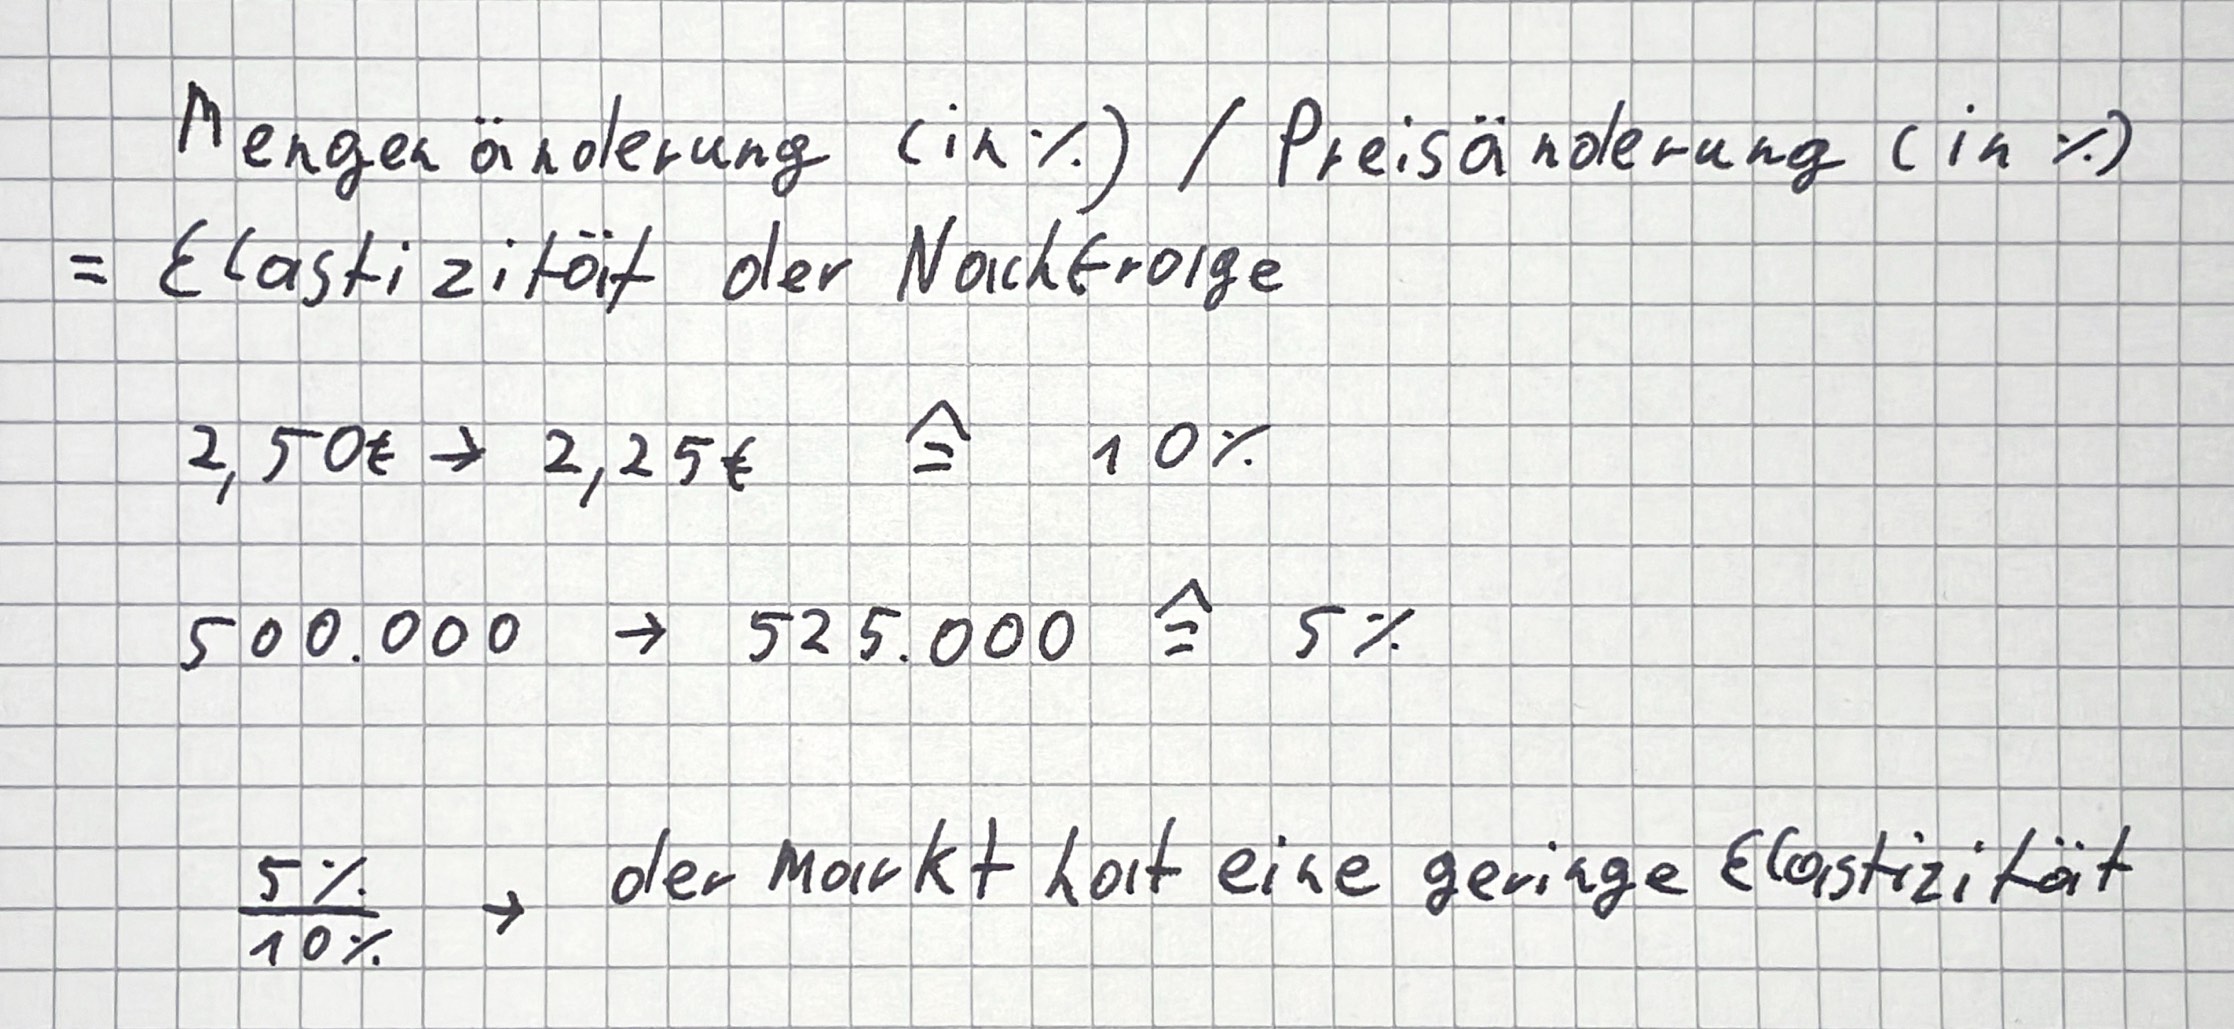 Mengenänderung (in %) / Preisänderung (in %)
= Elastizität der Nachfrage
2,50€ → 2,25€ ≙ 10%
500.000 → 525.000 ≙ 5%
5%/10% → der Markt hat eine geringe Elastizität